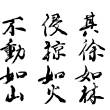 其徐如林
侵掠如火
不動如山